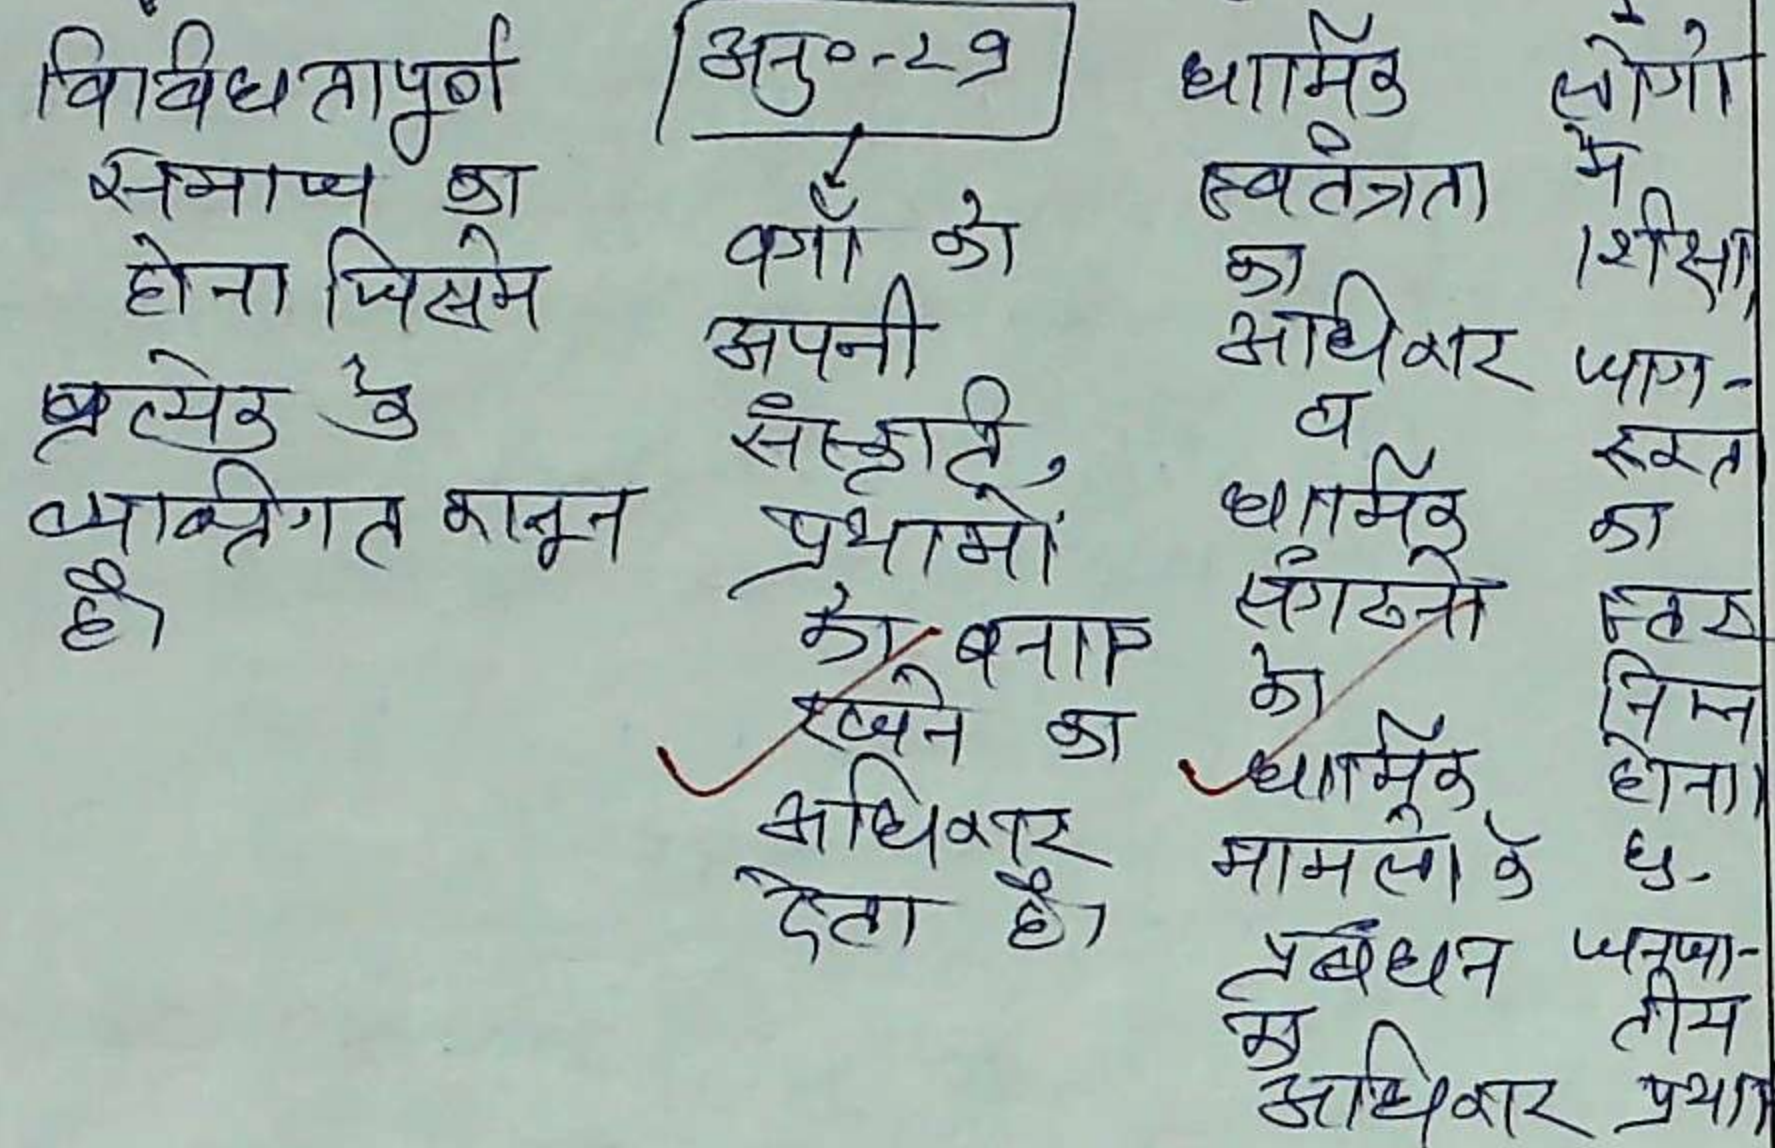 विविधतापूर्ण
समाज का
होना जिसमें
प्रत्येक के
व्यक्तिगत कानून
है।
अनु०-29
वर्गों को
अपनी
संस्कृति,
प्रथाओं
को बनाए
रखने का
अधिकार
देता है।
धार्मिक
स्वतंत्रता
का
अधिकार
व
धार्मिक
संगठनों
को
धार्मिक
मामलों के
प्रबंधन
का
अधिकार
लोगों
में
शिक्षा,
जाग-
रूकता
का
स्तर
निम्न
होना।
जनजा-
तीय
प्रथा